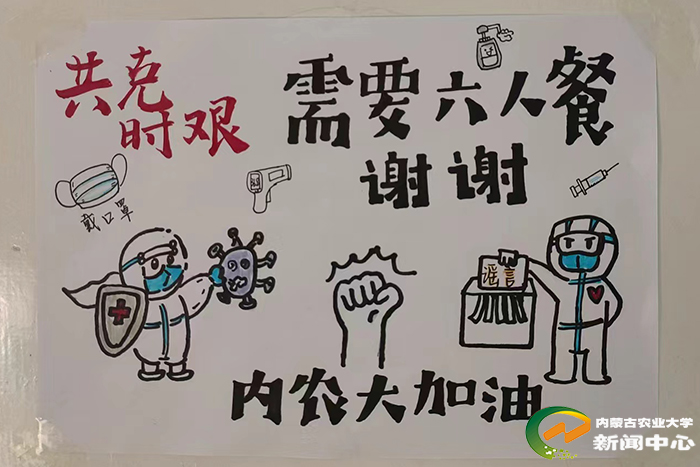 共克
时艰
需要六人餐
谢谢
戴口罩
谣言
内农大加油
内蒙古农业大学
新闻中心